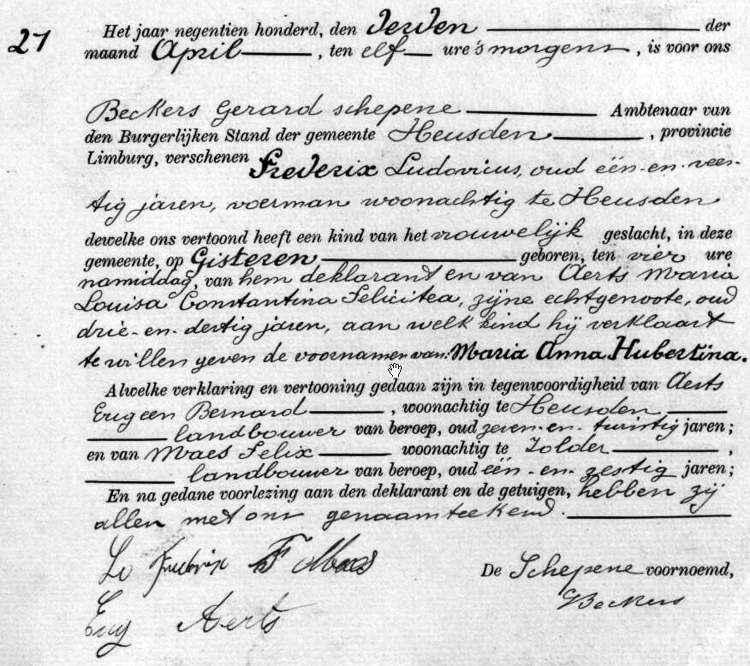 27
Het jaar negentien honderd, den Zevden der
maand April, ten elf ure 's morgens, is voor ons
Beckers Gerard schepene Ambtenaar van
den Burgerlijken Stand der gemeente Heusden, provincie
Limburg, verschenen Frederix Ludovicus, oud één-en-veer-
tig jaren, voerman woonachtig te Heusden
dewelke ons vertoond heeft een kind van het vrouwelijk geslacht, in deze
gemeente, op Gisteren geboren, ten vier ure
namiddag, van hem deklarant en van Aerts Maria
Louisa Constantina Felicitea, zijne echtgenoote, oud
drie-en-dertig jaren, aan welk kind hij verklaart
te willen geven de voornamen van: Maria Anna Hubertina.
Alwelke verklaring en vertooning gedaan zijn in tegenwoordigheid van Aerts
Eugeen Bernard, woonachtig te Heusden
landbouwer van beroep, oud zeven-en-twintig jaren;
en van Maes Felix woonachtig te Zolder,
landbouwer van beroep, oud één-en-zestig jaren;
En na gedane voorlezing aan den deklarant en de getuigen, hebben zij
allen met ons genaamteekend.
Lo Frederix F Maes
De Schepene voornoemd,
Beckers
Eug Aerts